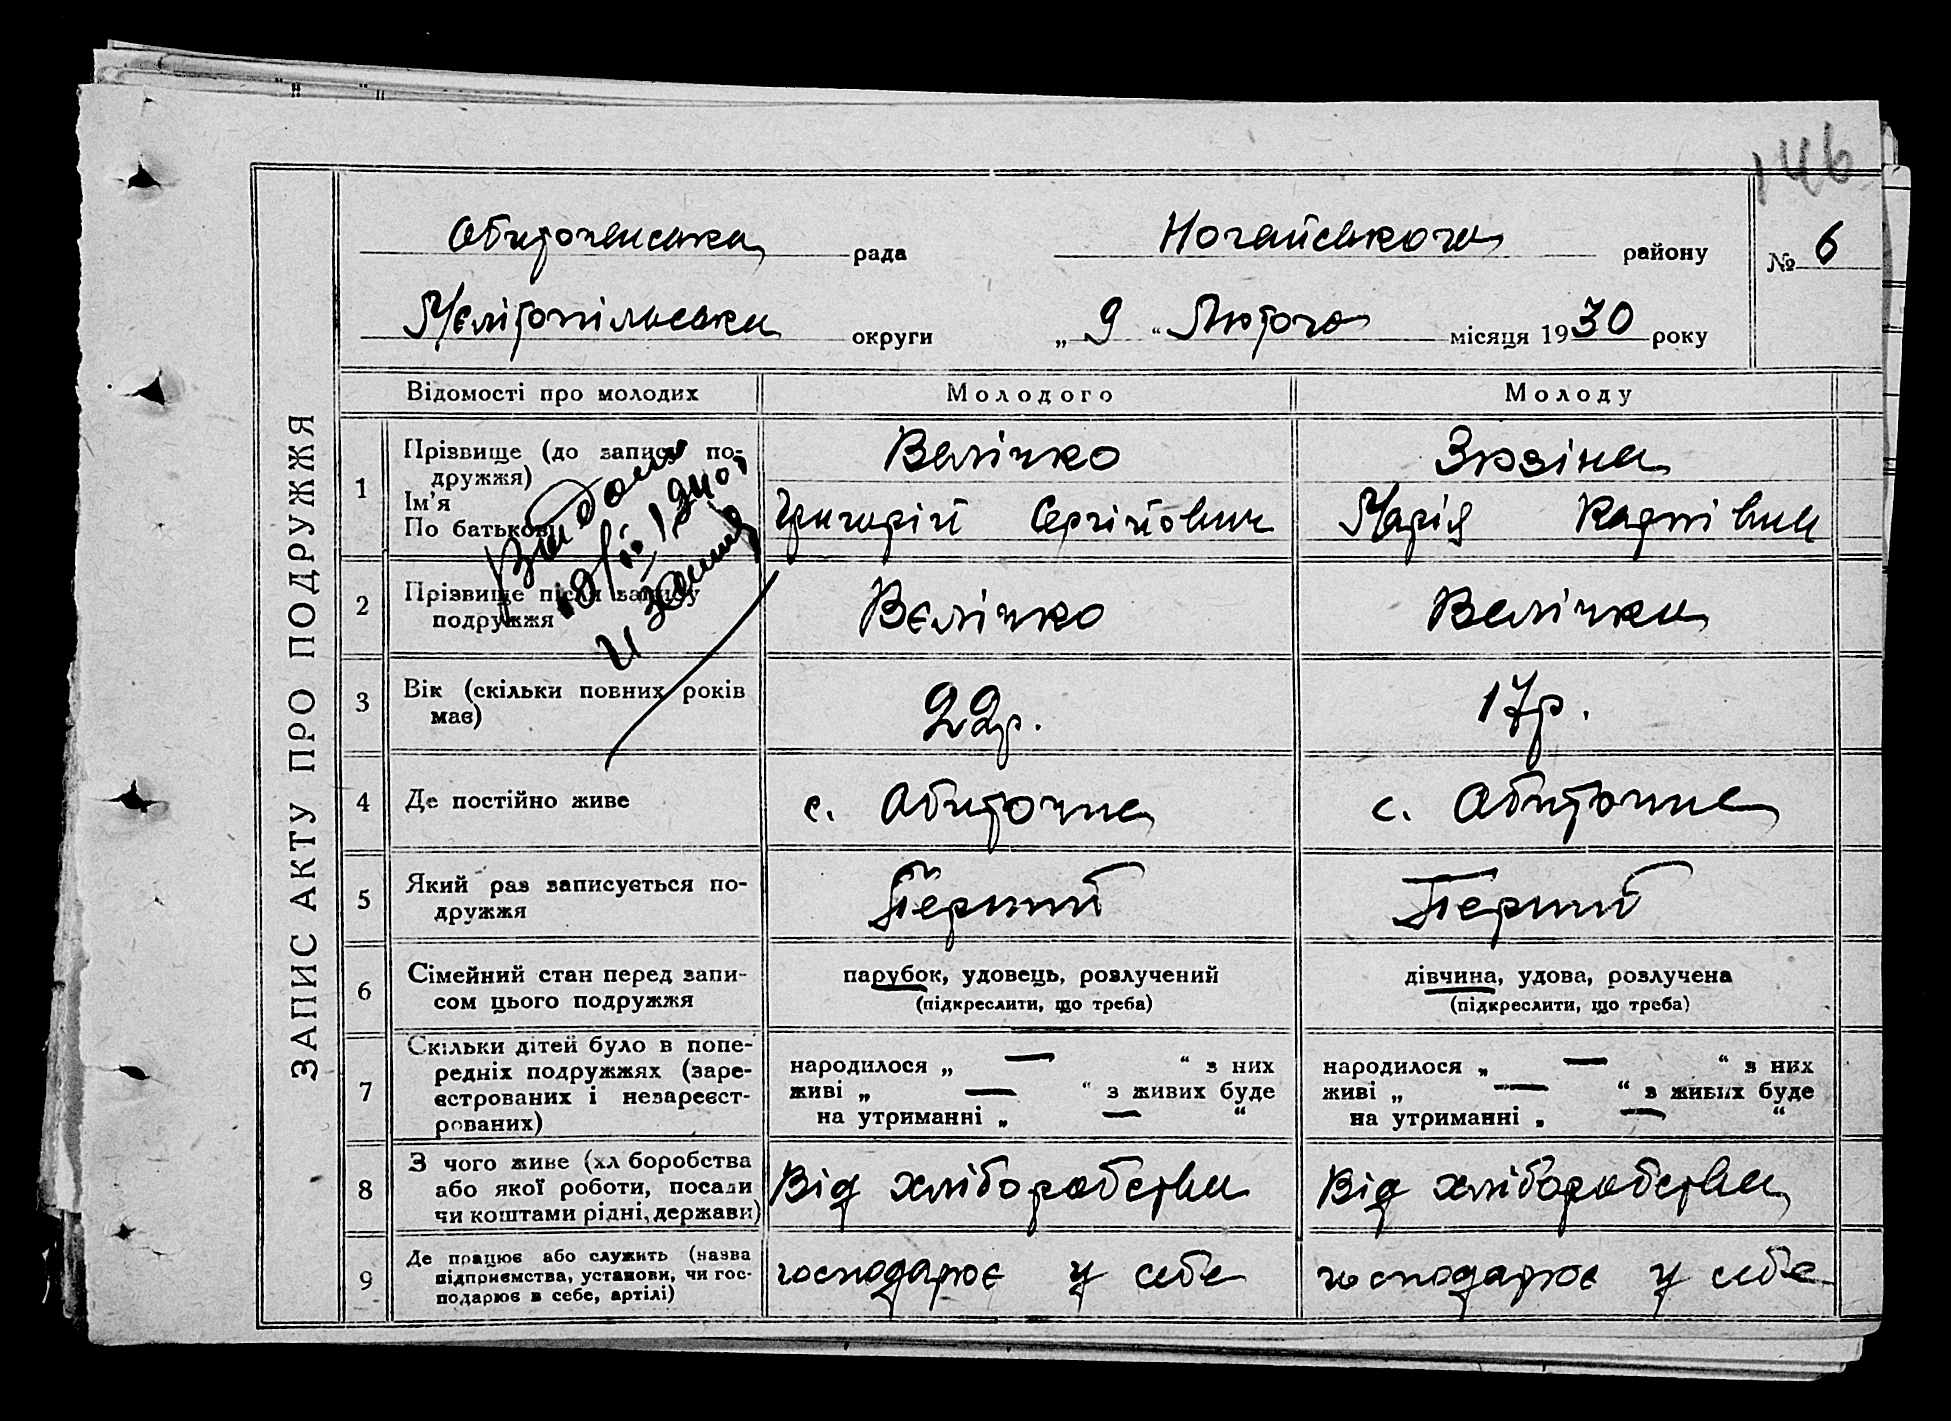 146
ЗАПИС АКТУ ПРО ПОДРУЖЖЯ
Обиточенська рада Ногайського району № 6
Мелітопільська округи „ 9 “ Лютого місяця 1930 року
Відомості про молодих Молодого Молоду
1 Прізвище (до запису по- Велічко Зюзіна
дружжя)
Ім'я
По батькові Григорій Сергійович Марія Карпівни
2 Прізвище після запису Вєлічко Велічка
подружжя
3 Вік (скільки повних років 22р. 17р.
має)
4 Де постійно живе с. Обиточне с. Обиточне
5 Який раз записується по- Перший Перший
дружжя
6 Сімейний стан перед запи- парубок, удовець, розлучений дівчина, удова, розлучена
сом цього подружжя (підкреслити, що треба) (підкреслити, що треба)
7 Скільки дітей було в попе-
редніх подружжях (заре- народилося „ — “ з них народилося „ — “ з них
єстрованих і незареєст- живі „ — “ з живих буде живі „ — “ з живих буде
рованих) на утриманні „ — “ на утриманні „ — “
8 З чого живе (хліборобства
або якої роботи, посади Від хліборобства Від хліборобства
чи коштами рідні, держави)
9 Де працює або служить (назва
підприємства, установи, чи гос- господарює у себе господарює у себе
подарює в себе, артілі)